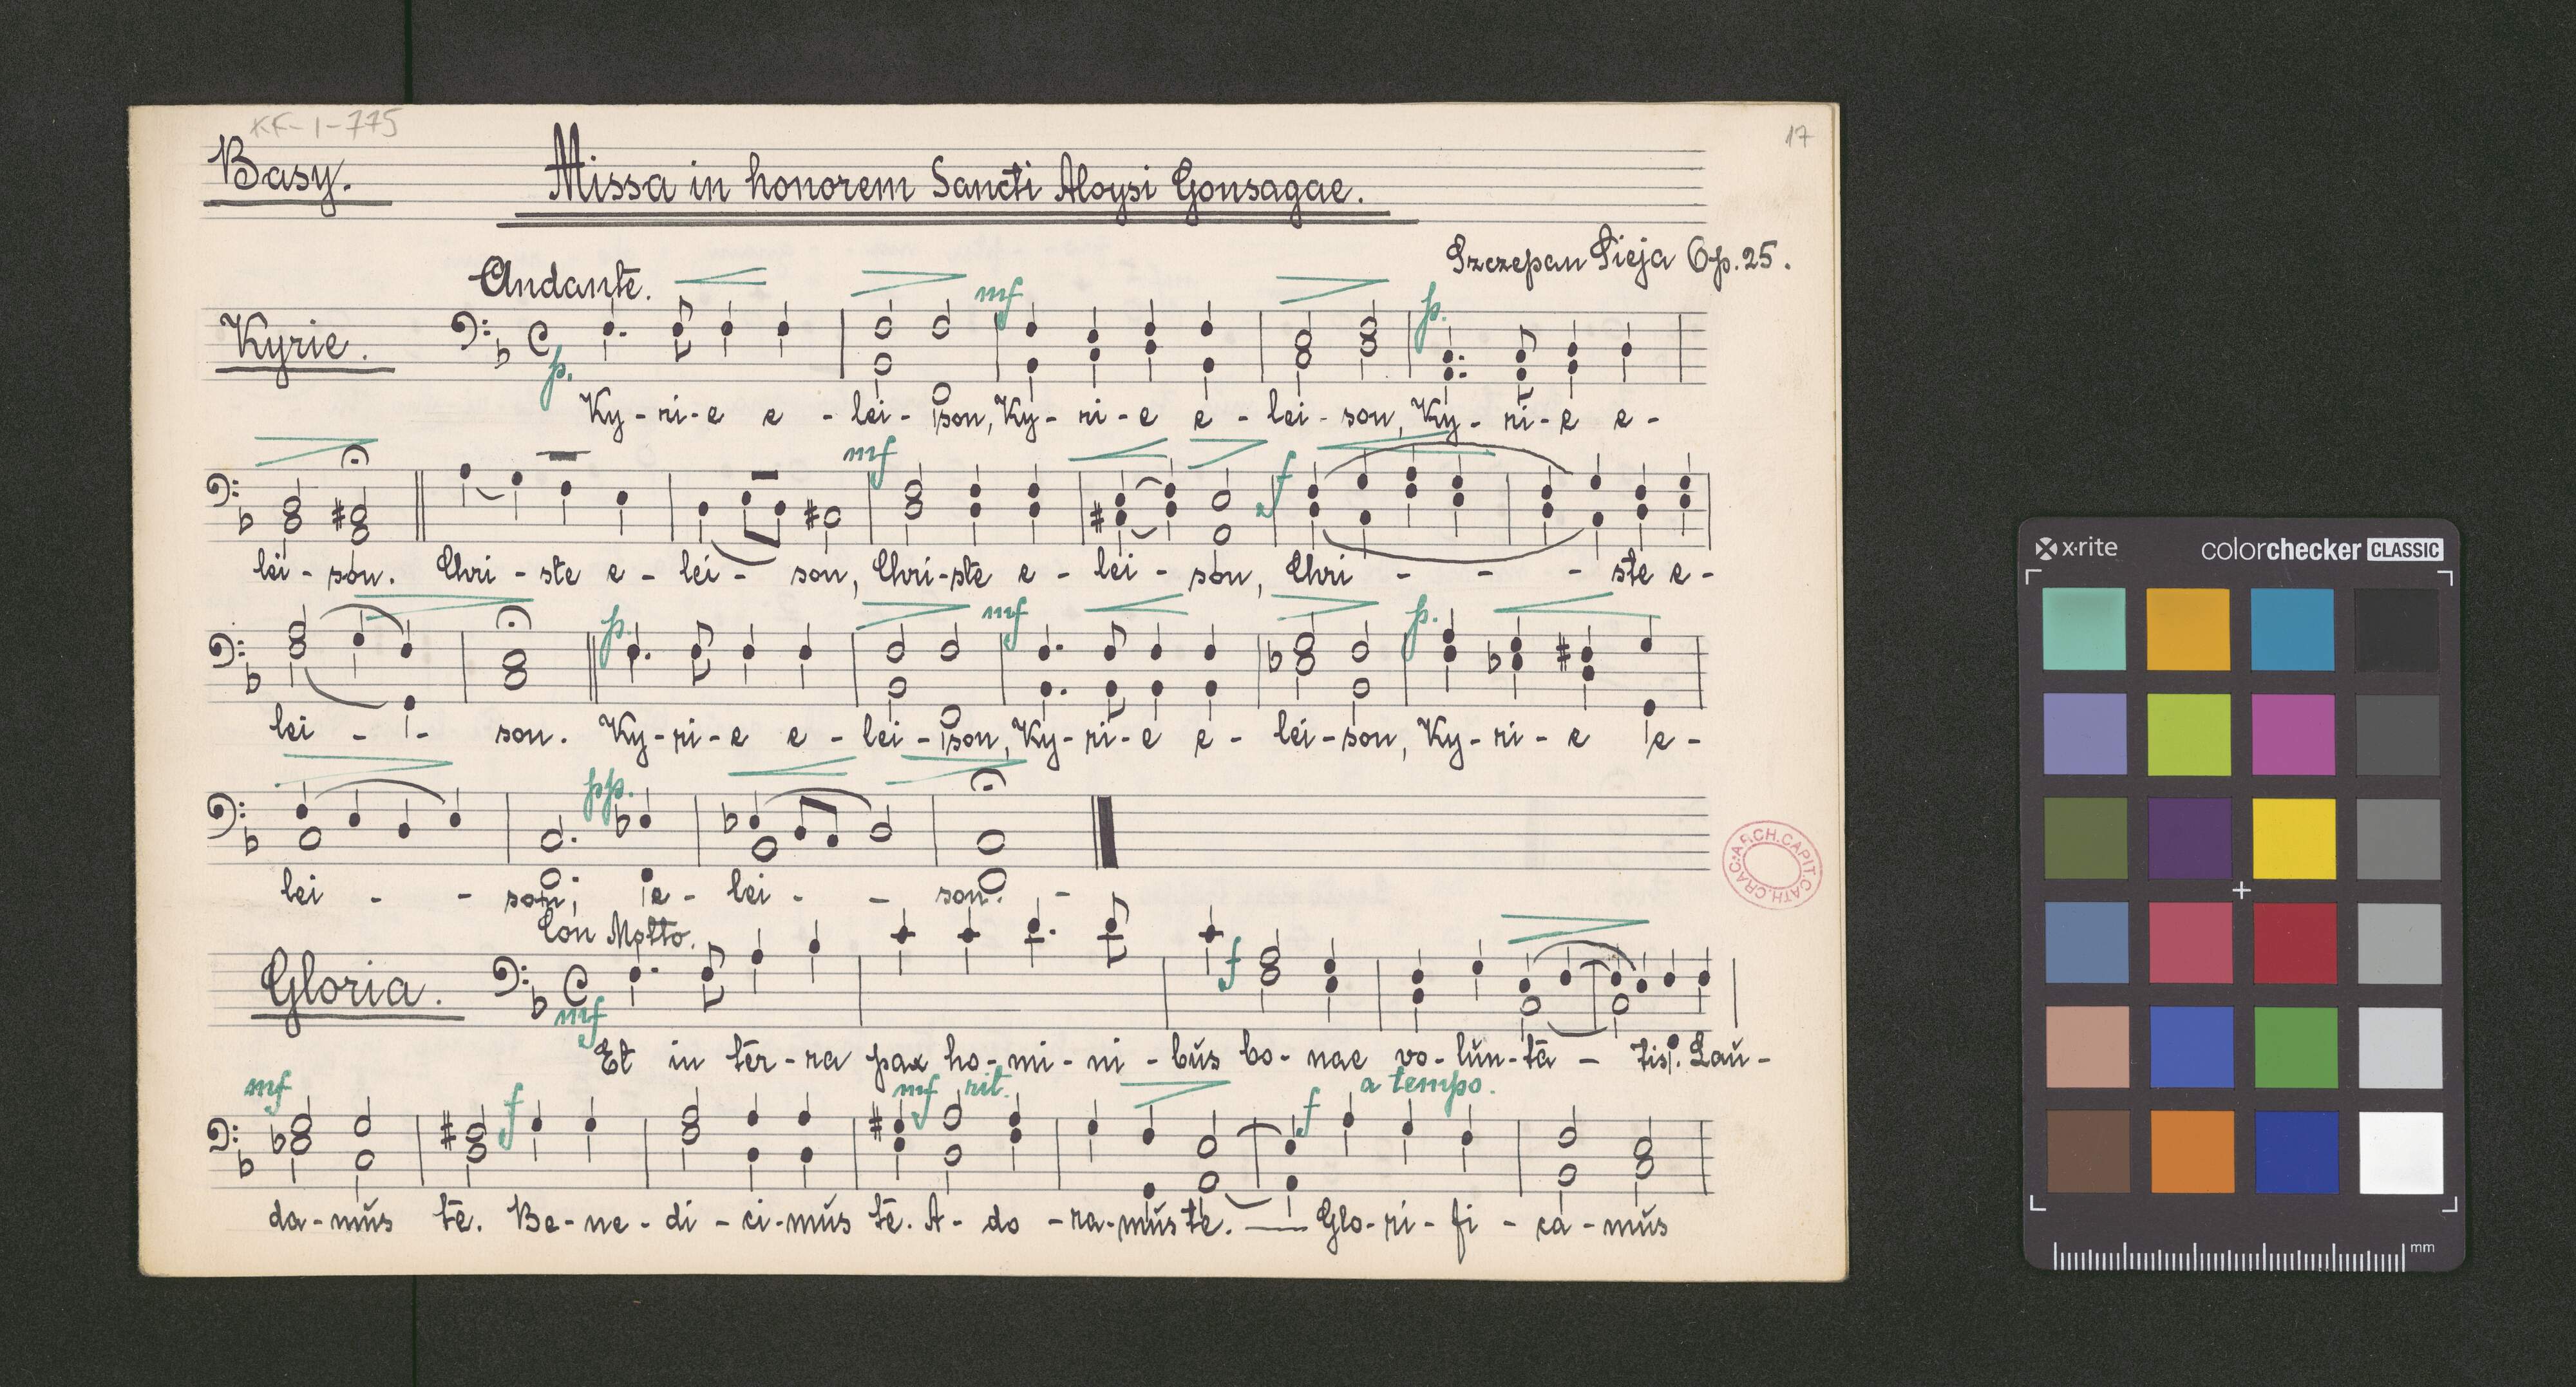 KK-I-775
17
Basy.
Missa in honorem Sancti Aloysi Gonsagae.
Szczepan Pieja Op. 25.
Andante.
mf
p.
Kyrie.
p.
Ky - ri - e e - lei - son, Ky - ri - e e - lei - son, Ky - ri - e e -
mf
f
lei - son. Chri - ste e - lei - son, Chri - ste e - lei - son, Chri - - - ste e -
p. mf p.
lei - - son. Ky - ri - e e - lei - son, Ky - ri - e e - lei - son, Ky - ri - e e -
pp.
lei - - son, e - lei - - son. -
ARCH.CAPIT.CATH.CRAC.
Con Molto.
f
Gloria.
mf
Et in ter - ra pax ho - mi - ni - bus bo - nae vo - lun - ta - tis. Lau -
mf f mf rit. f a tempo.
da - mus te. Be - ne - di - ci - mus te. A - do - ra - mus te. — Glo - ri - fi - ca - mus
x·rite colorchecker CLASSIC
mm